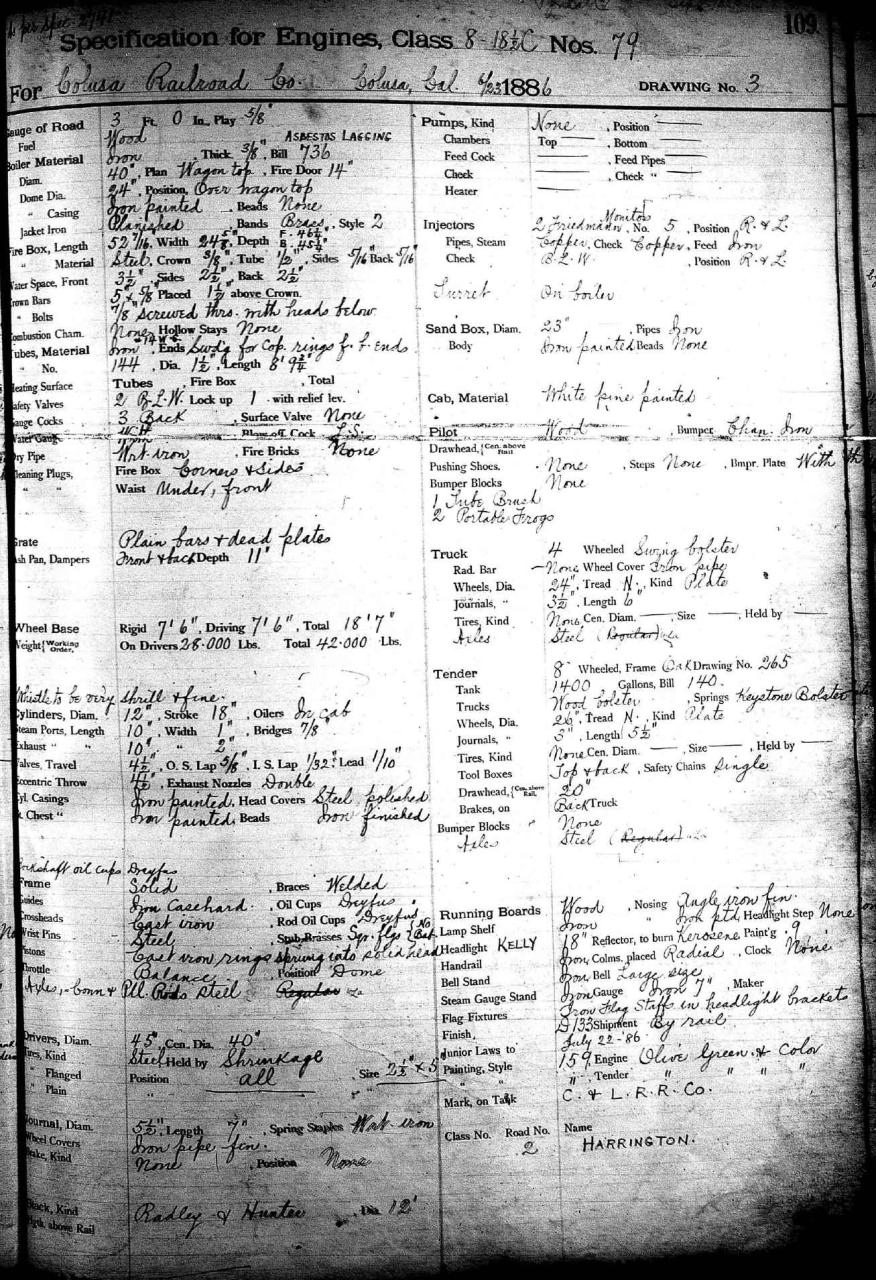 per Spec. 2741
109
Specification for Engines, Class 8-18½C Nos. 79
For Colusa Railroad Co. Colusa, Cal. 6/23 1886 DRAWING No. 3
Gauge of Road 3 Ft. 0 In., Play 5/8"
Fuel Wood ASBESTOS LAGGING
Boiler Material Iron Thick 3/8", Bill 736
Diam. 40", Plan Wagon top, Fire Door 14"
Dome Dia. 24", Position, Over wagon top
" Casing Iron painted. Beads None
Jacket Iron Planished Bands Brass, Style 2
Fire Box, Length 52 7/16, Width 24 5/8, Depth F. 46½ B. 45¼"
" Material Steel, Crown 3/8", Tube ½", Sides 5/16" Back 5/16"
Water Space, Front 3½", Sides 2½", Back 2½"
Crown Bars 5" x 5/8 Placed 1½ above Crown.
" Bolts 7/8 screwed thro. with heads below
Combustion Cham. None, Hollow Stays None
Tubes, Material Iron #14 W.G., Ends Swd'g for Cop. rings f. b. ends
" No. 144, Dia. 1½", Length 8' 9¾"
Heating Surface Tubes , Fire Box , Total
Safety Valves 2 B.L.W. Lock up 1 with relief lev.
Gauge Cocks 3 Back , Surface Valve None
Water Gauge Blow off Cock L.S.
Dry Pipe Wrt iron , Fire Bricks None
Cleaning Plugs, Fire Box Corners & Sides
" " Waist Under, front
Grate Plain bars & dead plates
Ash Pan, Dampers Front & back Depth 11"
Wheel Base Rigid 7' 6", Driving 7' 6", Total 18' 7"
Weight { Working Order. On Drivers 28.000 Lbs. Total 42.000 Lbs.
Whistle to be very shrill & fine.
Cylinders, Diam. 12", Stroke 18", Oilers In cab
Steam Ports, Length 10", Width 1", Bridges 7/8"
Exhaust " " 10" " 2"
Valves, Travel 4½", O. S. Lap 5/8", I. S. Lap 1/32" Lead 1/10"
Eccentric Throw 4½", Exhaust Nozzles Double
Cyl. Casings Iron painted, Head Covers Steel polished
St. Chest " Iron painted, Beads Iron finished
Rockshaft oil cups Dreyfus
Frame Solid , Braces Welded
Guides Iron Casehard. , Oil Cups Dreyfus
Crossheads Cast iron , Rod Oil Cups Dreyfus
Wrist Pins Steel , Stub Brasses Sqr. flgs {No Bab.
Pistons Cast iron rings sprung into solid head
Throttle Balance Position Dome
Axles, Conn & Pll. Rods Steel Regular
Drivers, Diam. 45", Cen. Dia. 40"
Tires, Kind Steel Held by Shrinkage
" Flanged Position All Size 2½" x 5"
" Plain " "
Journal, Diam. 5½", Length 7", Spring Staples Wrt. iron
Wheel Covers Iron pipe fin.
Brake, Kind None , Position None
Stack, Kind Radley & Hunter , Dia. 12"
Hgth. above Rail
Pumps, Kind None , Position
Chambers Top , Bottom
Feed Cock , Feed Pipes
Check , Check "
Heater
Injectors 2 Friedmann Monitor, No. 5, Position R. & L.
Pipes, Steam Copper, Check Copper, Feed Iron
Check B.L.W. , Position R. & L.
Turret On boiler
Sand Box, Diam. 23" , Pipes Iron
Body Iron painted Beads None
Cab, Material White pine painted
Pilot Wood , Bumper Chan. Iron
Drawhead, { Cen. above Rail
Pushing Shoes. None , Steps None , Bmpr. Plate With
Bumper Blocks None
1 Tube Brush
2 Portable Frogs
Truck 4 Wheeled Swing bolster
Rad. Bar None, Wheel Cover Iron pipe
Wheels, Dia. 24", Tread N., Kind Plate
Journals, " 3½", Length 6"
Tires, Kind None Cen. Diam. , Size , Held by
Axles Steel (Regular)
Tender 8 Wheeled, Frame Oak Drawing No. 265
Tank 1400 Gallons, Bill 140.
Trucks Wood bolster , Springs Keystone Bolster
Wheels, Dia. 26", Tread N., Kind Plate
Journals, " 3", Length 5½"
Tires, Kind None Cen. Diam. , Size , Held by
Tool Boxes Top & back , Safety Chains Single
Drawhead, { Cen. above Rail, 20"
Brakes, on Back Truck
Bumper Blocks " None
Axles Steel (Regular)
Running Boards Wood , Nosing Angle iron fin.
Lamp Shelf Iron " Iron ptd. Headlight Step None
Headlight KELLY 18" Reflector, to burn Kerosene Paint'g . 9
Handrail Iron, Colms, placed Radial , Clock None
Bell Stand Iron, Bell Large size
Steam Gauge Stand Iron Gauge Iron 7" , Maker
Flag Fixtures Iron Flag Staffs in headlight brackets
Finish, D133 Shipment By rail
Junior Laws to July 22-'86
Painting, Style 159, Engine Olive Green & Color
" " " Tender " " " "
Mark, on Tank C. & L. R. R. Co.
Class No. Road No. 2 Name HARRINGTON.